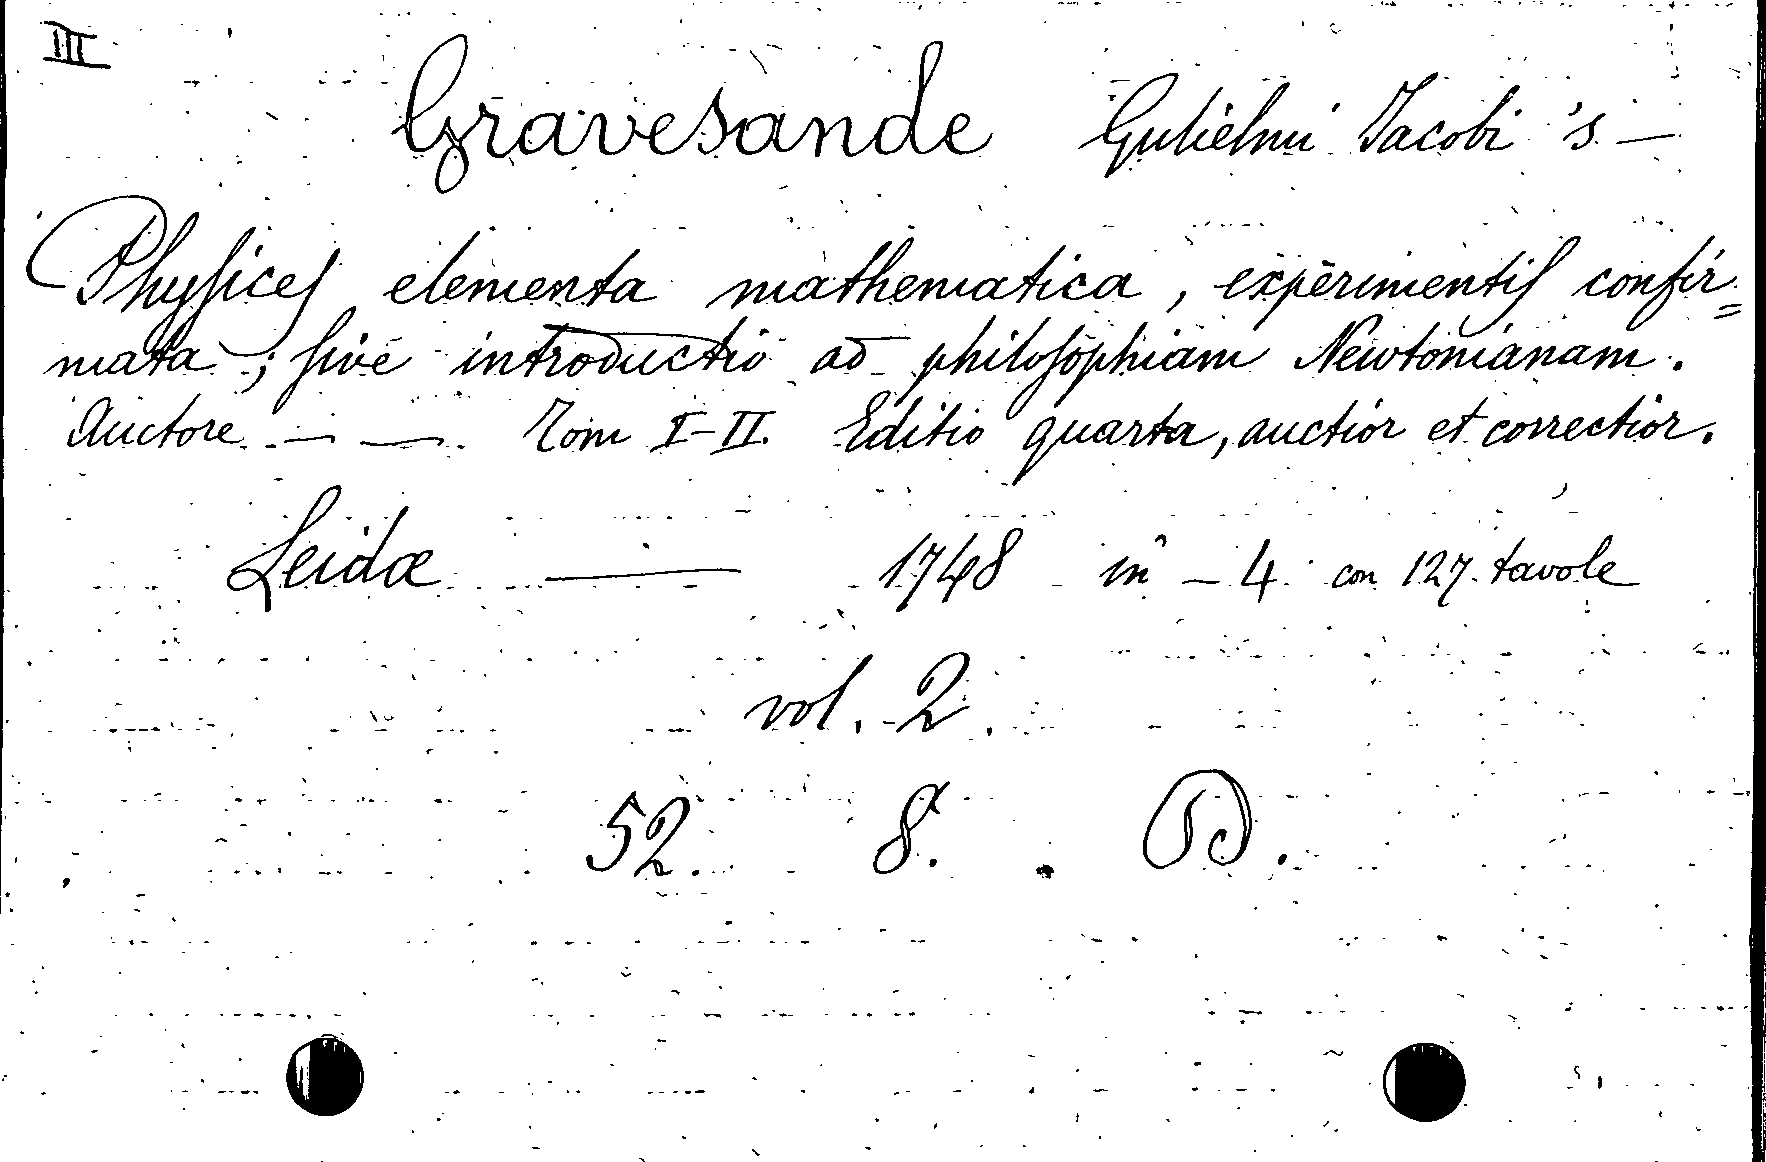 III
Gravesande Gulielmi Jacobi 's —
Physices elementa mathematica, experimentis confir=
mata; sive introductio ad philosophiam Newtonianam.
Auctore — — Tom I-II. Editio quarta, auctior et correctior.
Leidæ — 1748 in - 4 con 127 tavole
vol. 2.
52. 8. D.